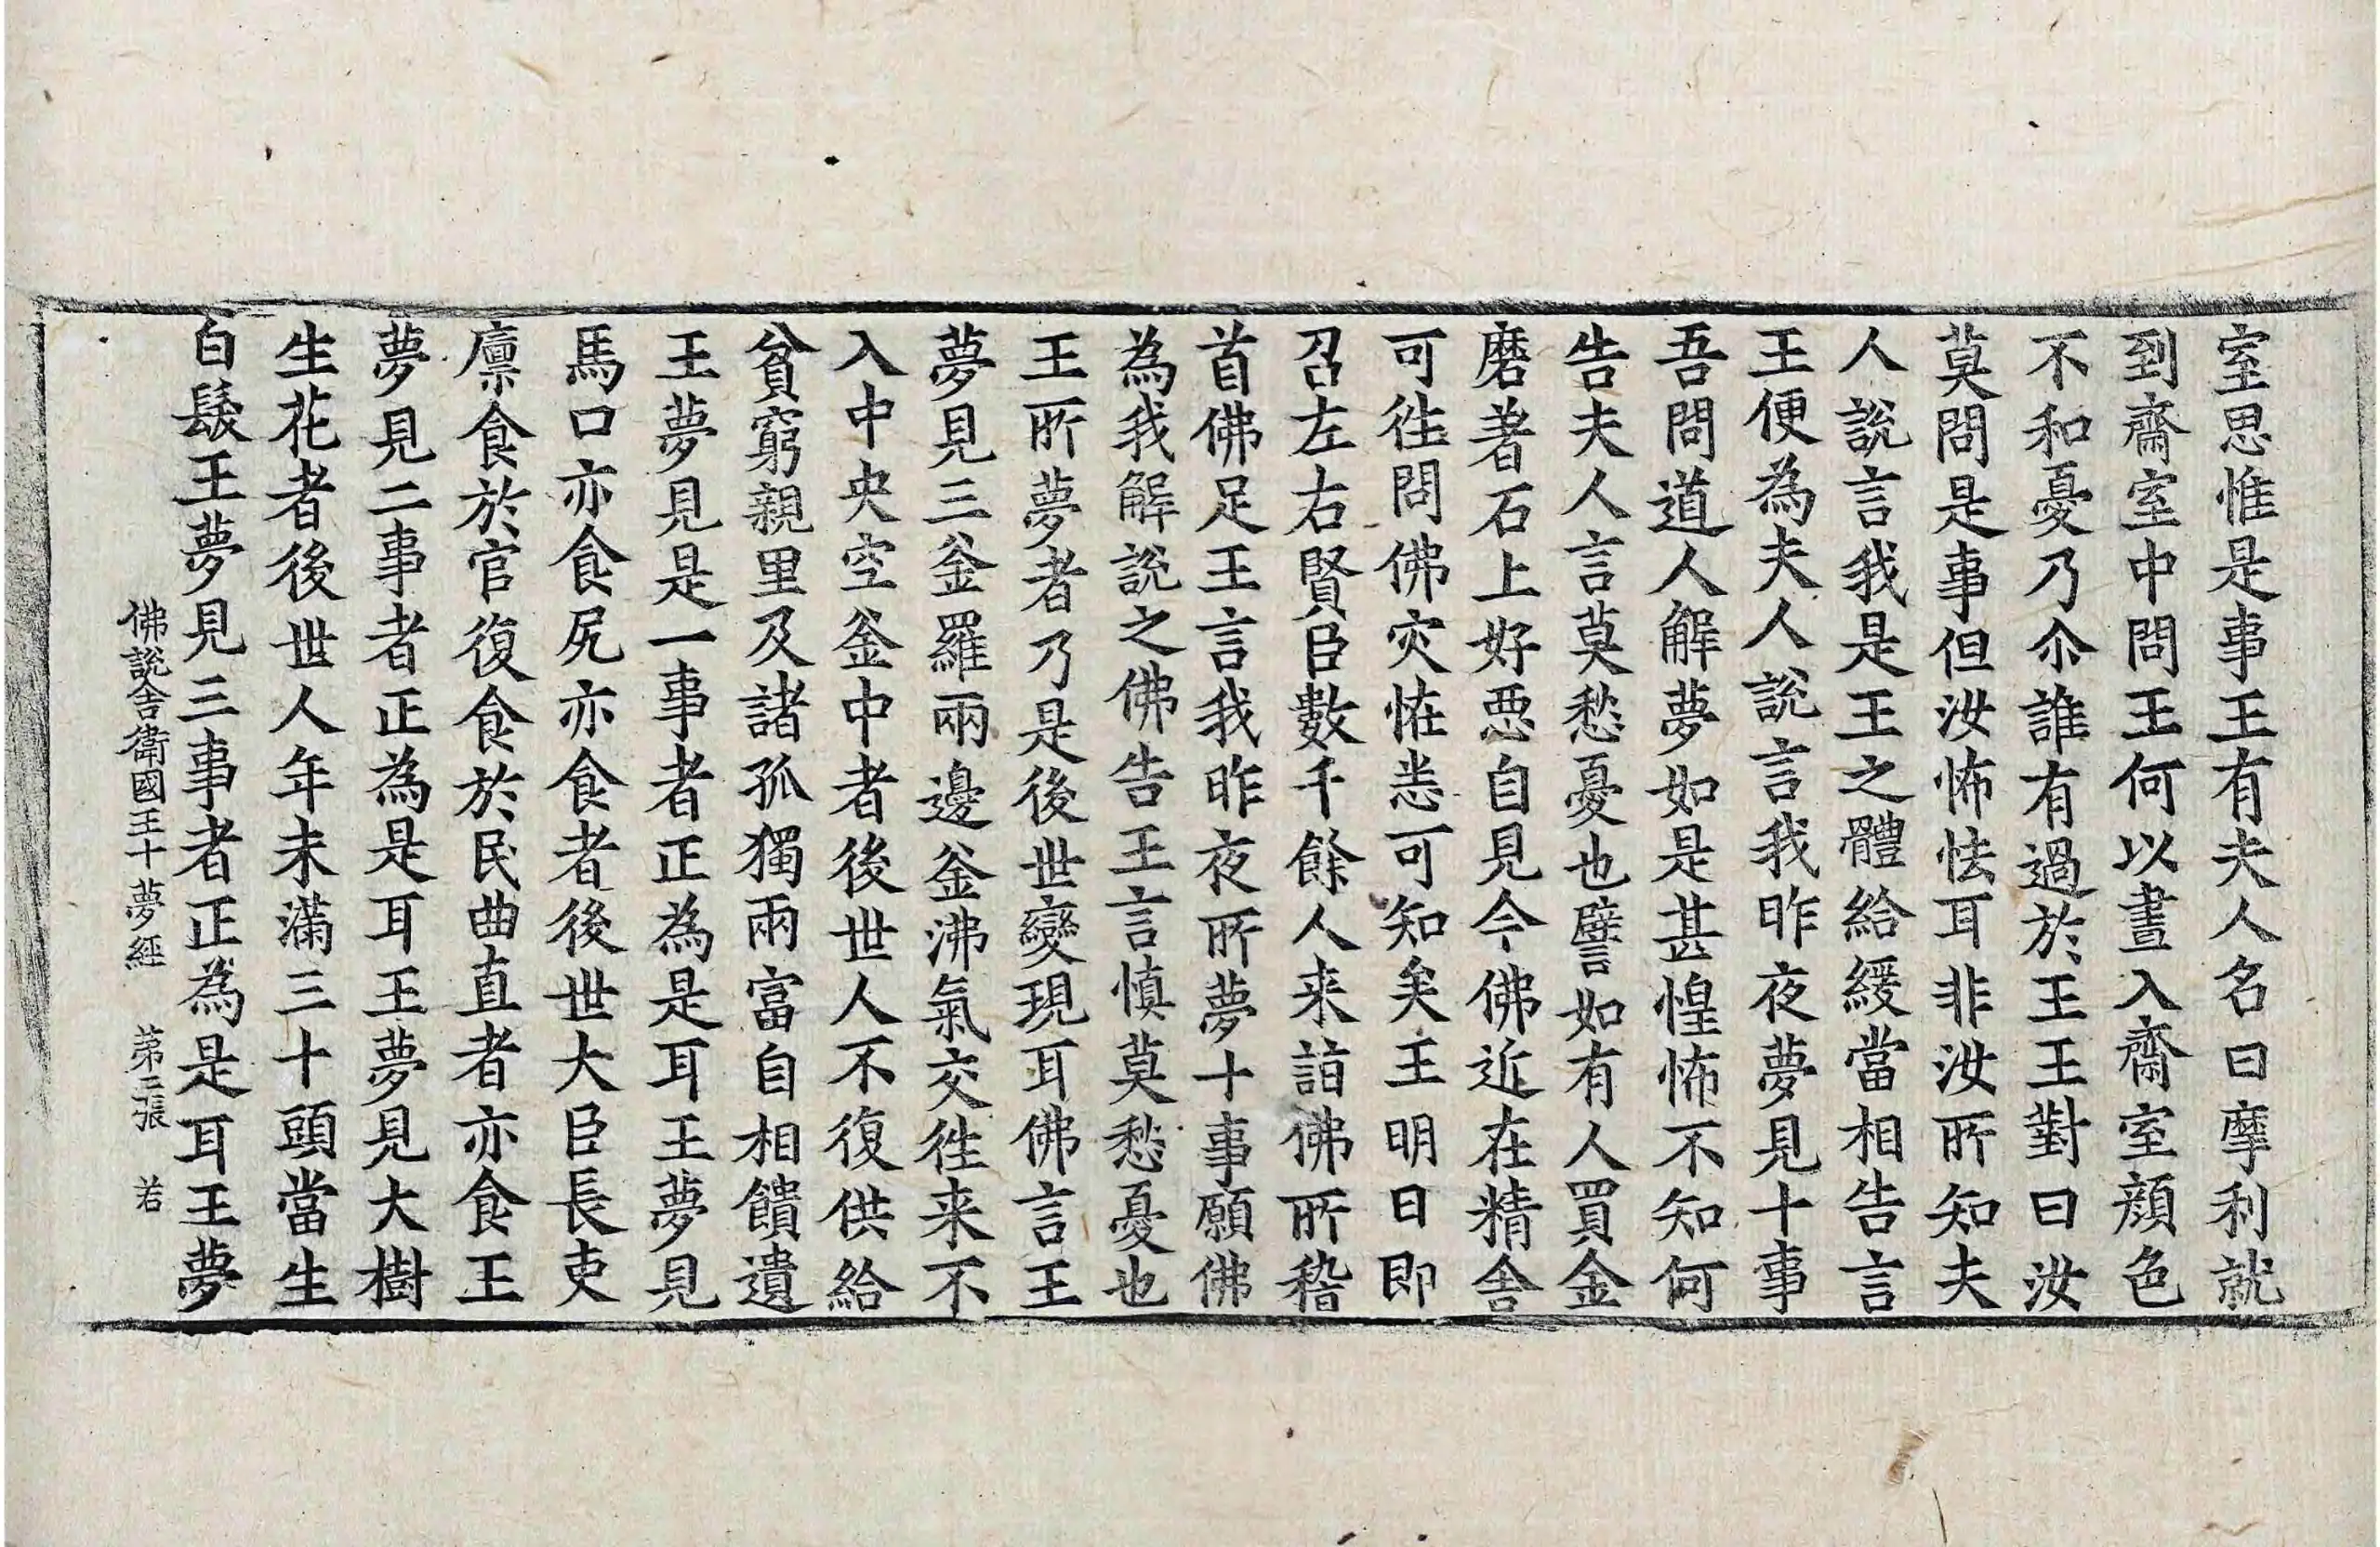 室思惟是事王有夫人名曰摩利就
到齋室中問王何以晝入齋室顏色
不和憂乃尒誰有過於王王對曰汝
莫問是事但汝怖怯耳非汝所知夫
人說言我是王之體給緩當相告言
王便為夫人說言我昨夜夢見十事
吾問道人解夢如是甚惶怖不知何
告夫人言莫愁憂也譬如有人買金
磨著石上好惡自見今佛近在精舍
可往問佛灾恠恙可知矣王明日即
召左右賢臣數千餘人来詣佛所稽
首佛足王言我昨夜所夢十事願佛
為我解說之佛告王言慎莫愁憂也
王所夢者乃是後世變現耳佛言王
夢見三釜羅兩邊釜沸氣交往来不
入中央空釜中者後世人不復供給
貧窮親里及諸孤獨兩富自相饋遺
王夢見是一事者正為是耳王夢見
馬口亦食尻亦食者後世大臣長吏
廪食於官復食於民曲直者亦食王
夢見二事者正為是耳王夢見大樹
生花者後世人年未滿三十頭當生
白髮王夢見三事者正為是耳王夢
佛說舍衛國王十夢經 第二張 若